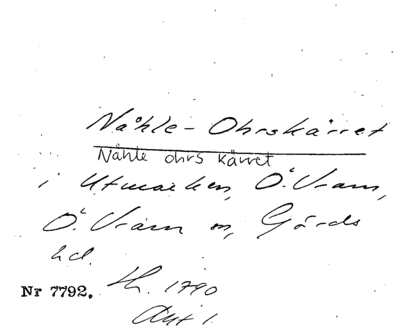 Nåhle-Ohrskärret
Nåhle ohrs kärret
i Utmarken, Ö. Vram,
Ö. Vram sn, Gärds
hd.
Nr 7792. th. 1790
Akt 1.